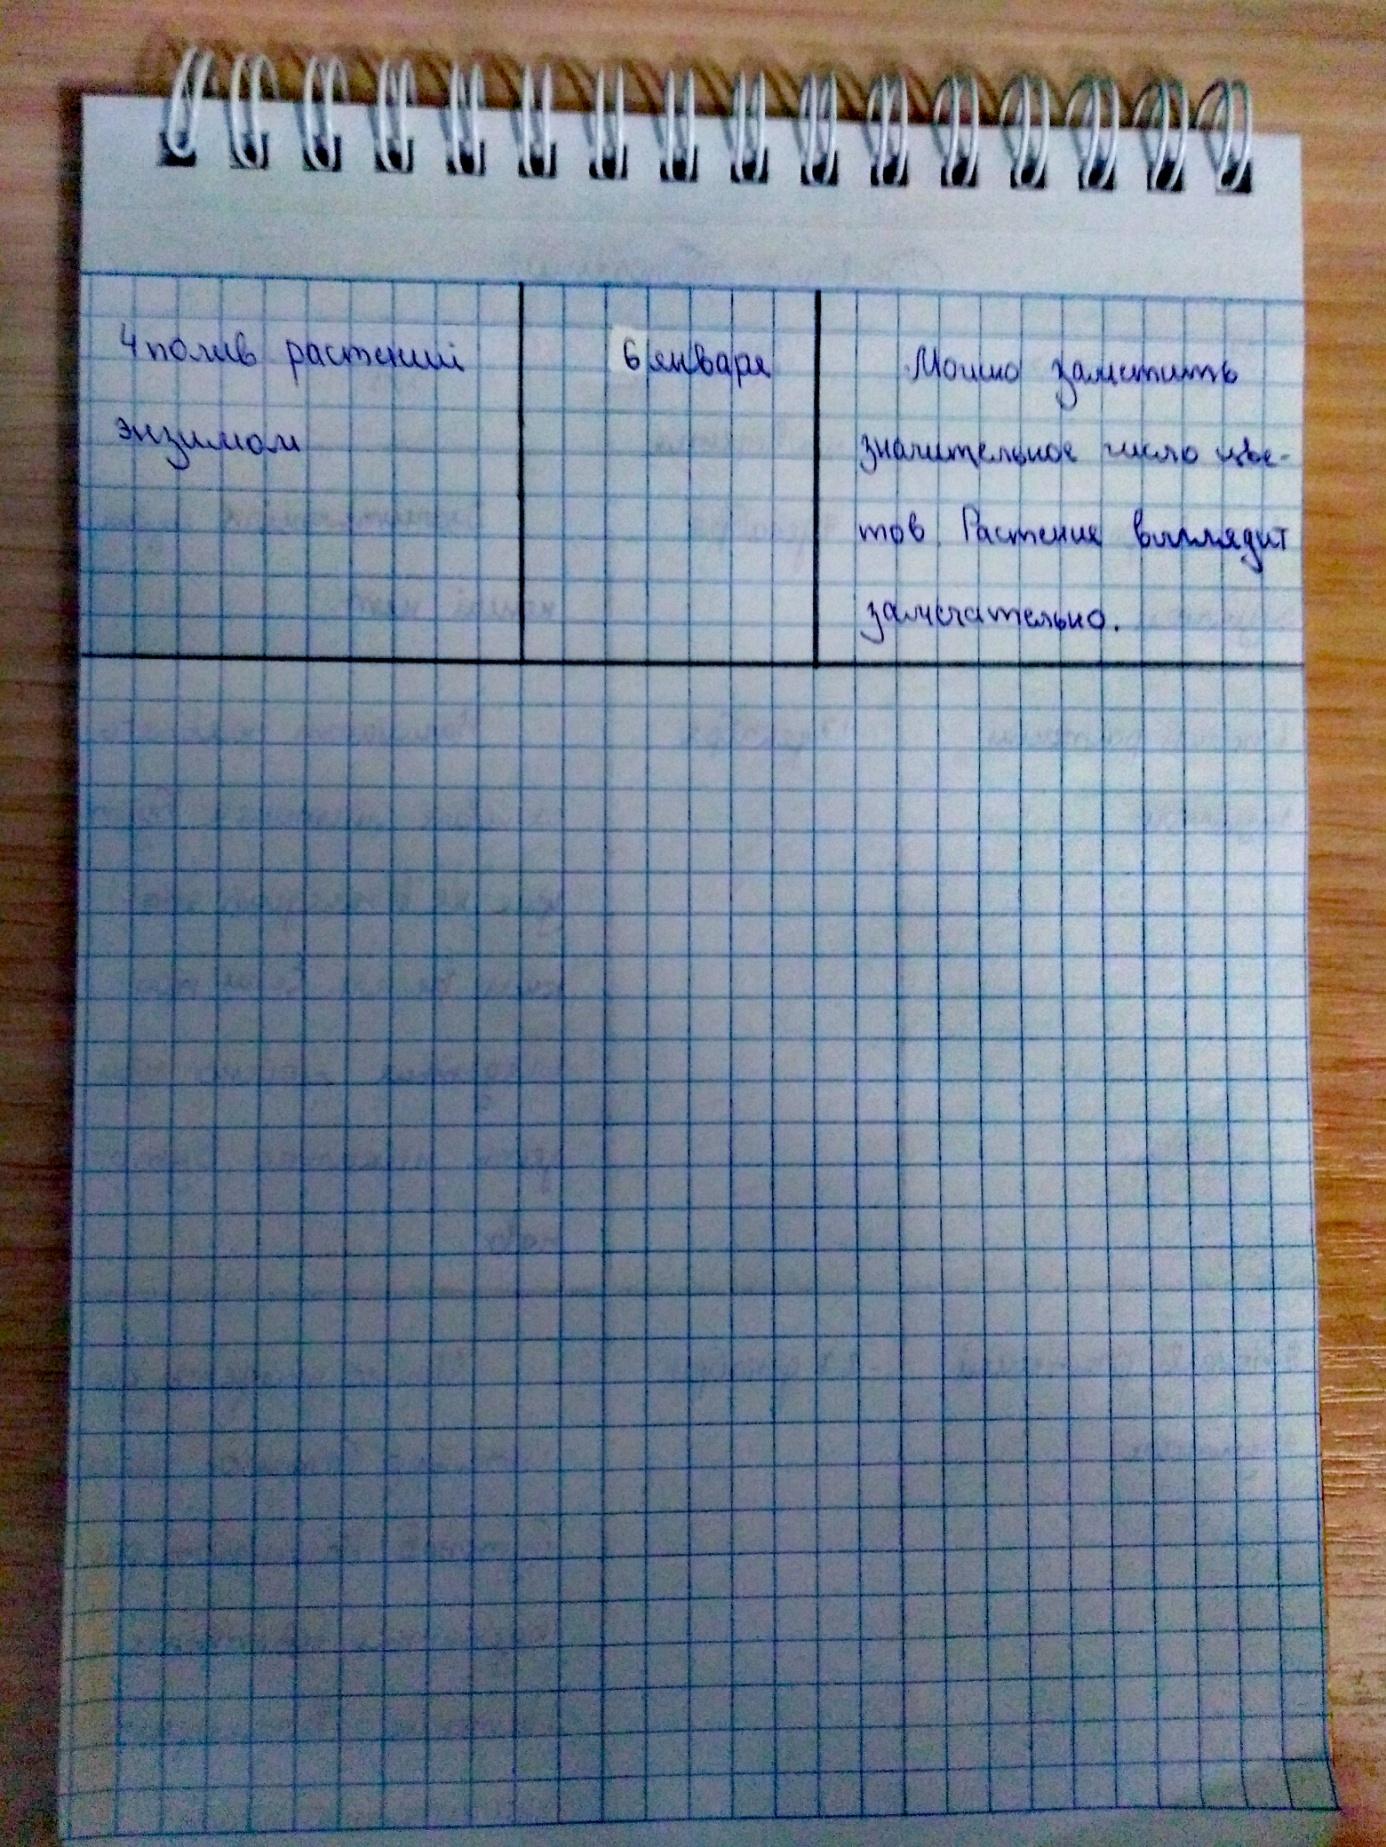 4 полив растений
энзимом
6 января
Можно заметить
значительное число цве-
тов. Растение выглядит
замечательно.